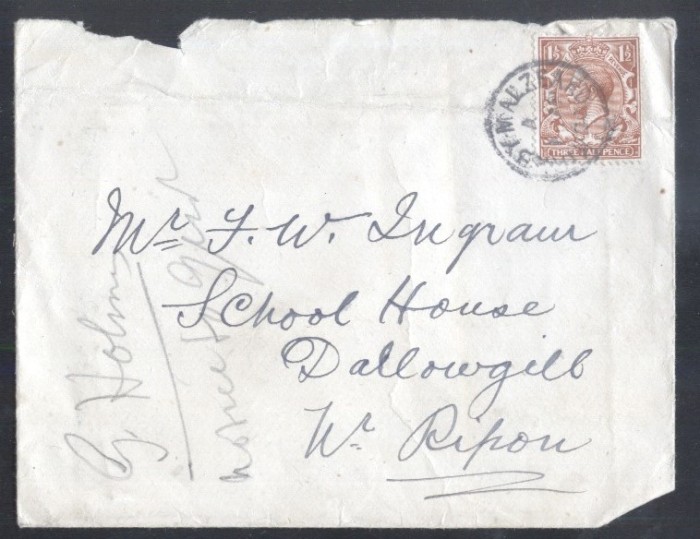 1½ 1½
THREE HALF PENCE
KIRKBY MALZEARD
Mr F. W. Ingram
School House
Dallowgill
Nr Ripon
G. Holm